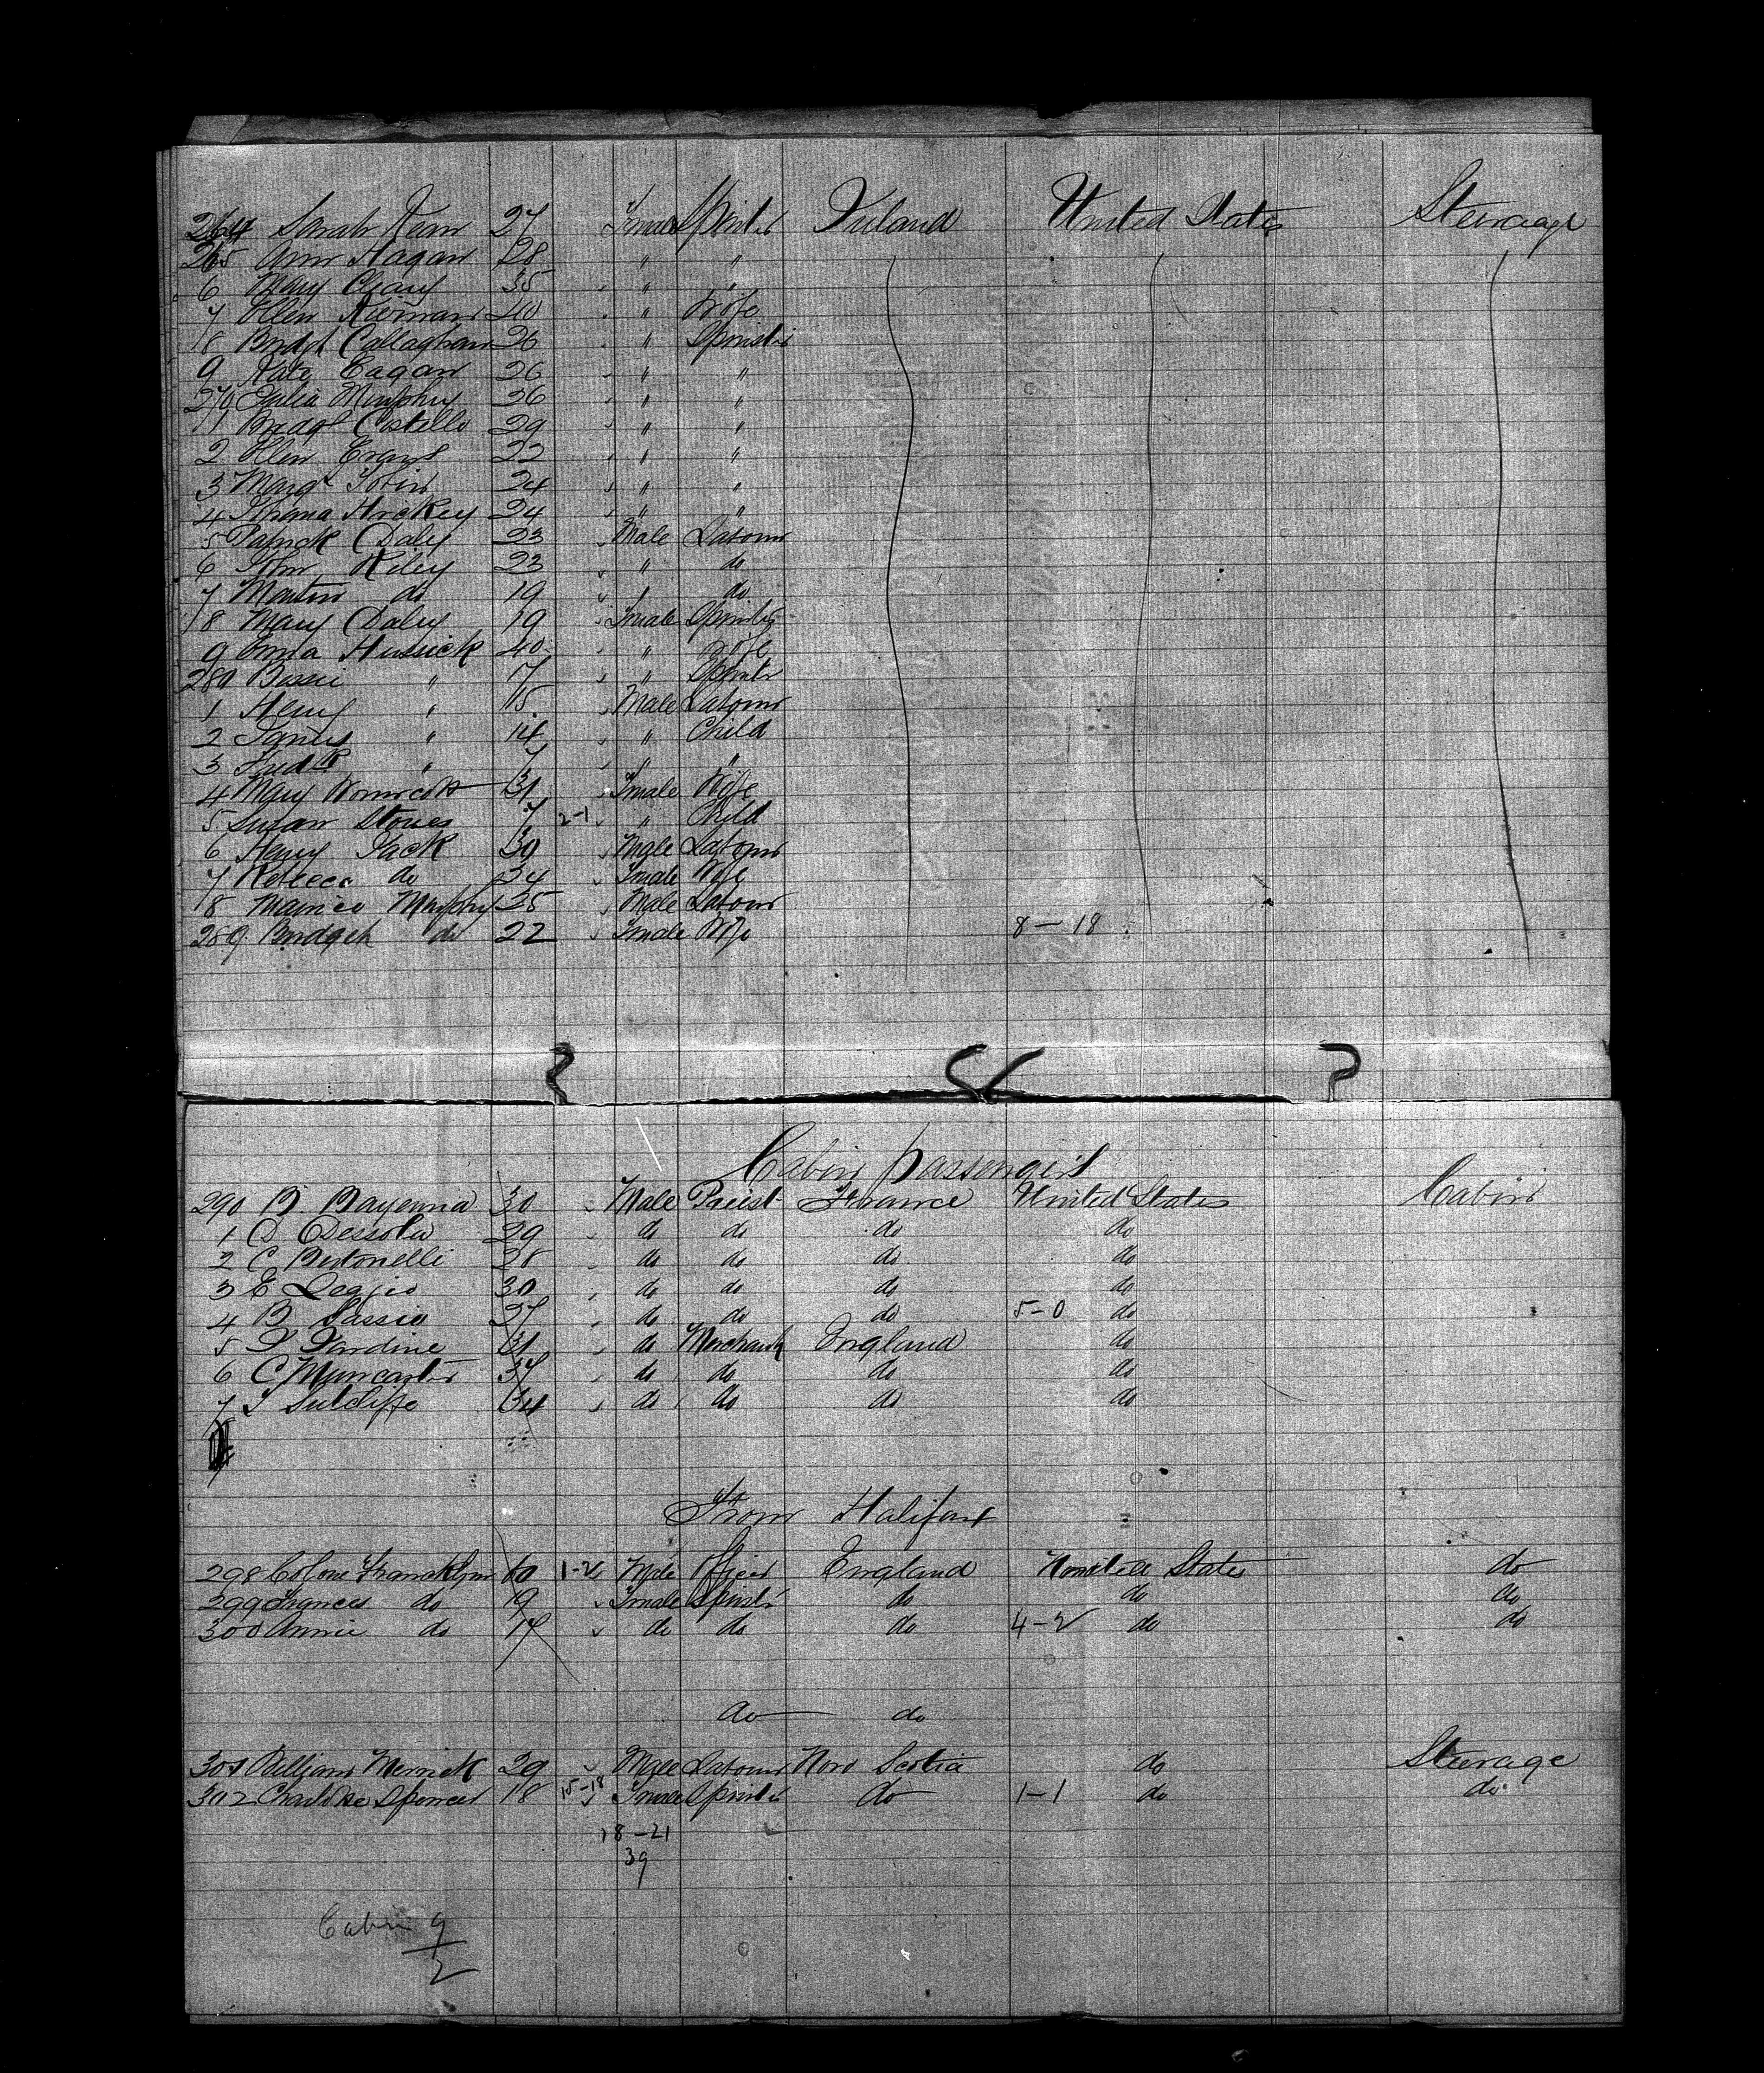 264 Sarah Kean 27 Female Spinster Ireland United States Steerage
265 Ann Hagan 28 " "
6 Mary Cleary 35 " "
7 Ellen Kiernan 40 " Wife
8 Bridgt Callaghan 26 " Spinster
9 Kate Eagan 26 " "
270 Julia Murphy 26 " "
1 Bridgt Costello 29 " "
2 Ellen Evans 22 " "
3 Margt Tobin 24 " "
4 Hickey 24 " "
5 Patrick Daley 23 Male Labourer
6 Riley 23 " do
7 Martin do 19 " do
8 Mary Daley 19 Female Spinster
9 Emma Hussick 40 " Wife
280 Bessie " 17 " Spinstr
1 Henry " 15 Male Labourer
2 James " 14 " Child
3 Fredk " 7 " "
4 Mary 31 Female Wife
5 Susan Stones 7 2-1 " Child
6 Harry Jack 30 Male Labourer
7 Rebecca do 34 Female Wife
8 Maurice Murphy 25 Male Labour
289 Bridget do 22 Female Wife 8-18
Cabin passengers
290 B Bayenna 30 Male Priest France United States Cabin
1 D Dessola 29 do do do do
2 C Bertonelli 28 do do do do
3 E Legjio 30 do do do do
4 B Sassio 27 do do do 5-0 do
5 J Jardine 31 do Merchant England do
6 C Muncaster 37 do do do do
7 J Sutcliffe 34 do do do do
From Halifax
298 Colone Franklyn 60 1-2 Male Officer England United States do
299 Frances do 19 Female Spinstr do do do
300 Annie do 17 do do do 4-2 do do
do do
301 William Merrick 29 Male Labourer Nova Scotia do Steerage
302 Charlotte Spencer 18 15-18 Female Spinstr do 1-1 do do
18-21
39
Cabin 9
2